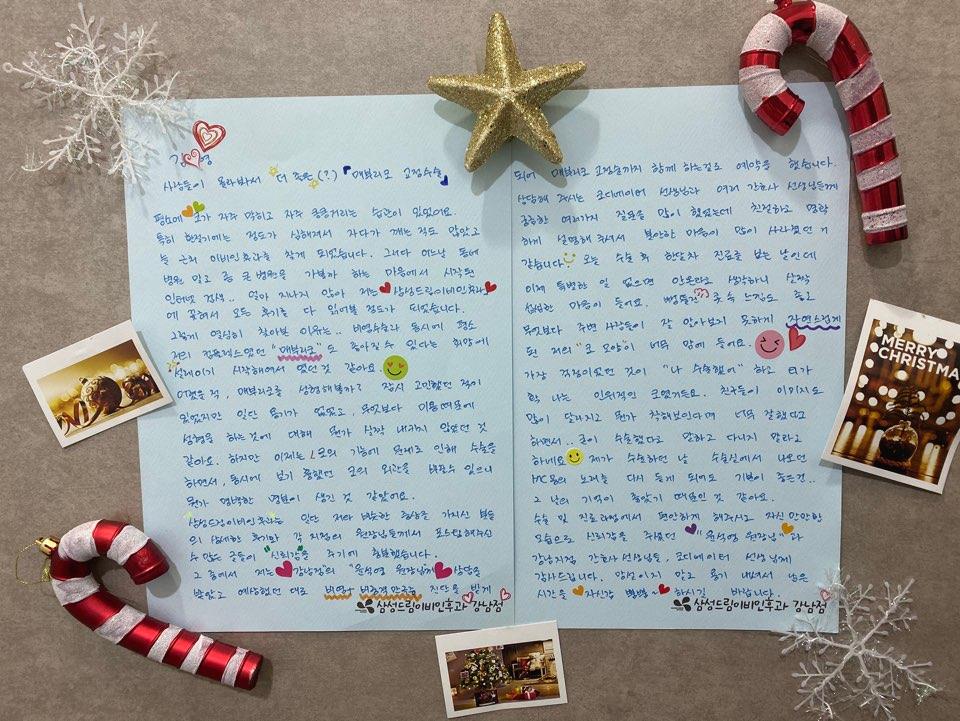 사람들이 몰라봐서 더 좋은(?) 『매부리코 교정수술』
평소에 코가 자주 막히고 자주 킁킁거리는 습관이 있었어요.
특히 환절기에는 정도가 심해져서 자다가 깨는 적도 많았고
늘 근처 이비인후과를 찾게 되었습니다. 그러다 여느 동네
병원 말고 좀 큰 병원을 가볼까 하는 마음에서 시작된
인터넷 검색.. 얼마 지나지 않아 저는 삼성드림이비인후과
에 꽂혀서 모든 후기를 다 읽어볼 정도가 되었습니다.
그렇게 열심히 찾아본 이유는.. 비염수술과 동시에 평소
저의 컴플렉스였던 "매부리코"도 좋아질 수 있다는 희망에
설레이기 시작해여서 였던 것 같아요
어렸을 적, 매부리코를 성형해볼까? 잠시 고민했던 적이
있었지만 일단 용기가 없었고, 무엇보다 미용때문에
성형을 하는것에 대해 뭔가 살짝 내키지 않았던 것
같아요. 하지만 이제는 코의 기능에 문제로 인해 수술을
하면서, 동시에 보기 흉했던 코의 외관을 바꿀수 있으니
뭔가 명백한 명분이 생긴 것 같았어요.
삼성드림이비인후과는 일단 저와 비슷한 증상을 가지신 분들
의 상세한 후기와 각 지점의 원장님들께서 포스팅해주신
수 많은 글들이 "신뢰감"을 주기에 충분했습니다.
그 중에서 저는 강남점의 "윤석영 원장님께" 상담을
받았고 예상했던 대로 비염, 비중격 만곡증 진단을 받게
삼성드림이비인후과 강남점
되어 매부리코 교정술까지 함께 하는걸로 예약을 했습니다.
상담해 주시는 코디네이터 선생님과 여러 간호사 선생님들께
궁금한 여러가지 질문을 많이 했었는데 친절하고 명확
하게 설명해 주셔서 불안한 마음이 많이 사라졌던 거
같습니다. 오늘 수술 후 한달차 진료를 보는 날인데
이제 특별한 일 없으면 안온다고 생각하니 살짝
섭섭한 마음이 들어요. 뻥뚫린 콧 속 느낌도 좋고
무엇보다 주변 사람들이 잘 알아보지 못하게 자연스럽게
된 저의 "코 모양"이 너무 맘에 들어요.
가장 걱정이었던 것이 "나 수술했어" 하고 티가
확 나는 인위적인 모양이었거든요. 친구들이 이미지도
많이 달라지고 뭔가 착해보인다며 너무 잘했다고
하면서.. 굳이 수술했다고 말하고 다니지 말라고
하네요 제가 수술하던 날 수술실에서 나오던
MC몽의 노래를 다시 듣게 되어도 기분이 좋은건..
그 날의 기억이 좋았기 때문인 것 같아요.
수술 및 진료과정에서 편안하게 해주시고 자신만만한
모습으로 신뢰감을 주셨던 "윤석영 원장님"과
강남지점 간호사 선생님들, 코디네이터 선생님께
감사드립니다. 망설이지 말고 용기 내셔서 남은
시간을 자신감 뿜뿜~ 하시길 바랍니다.
삼성드림이비인후과 강남점
MERRY
CHRISTMA